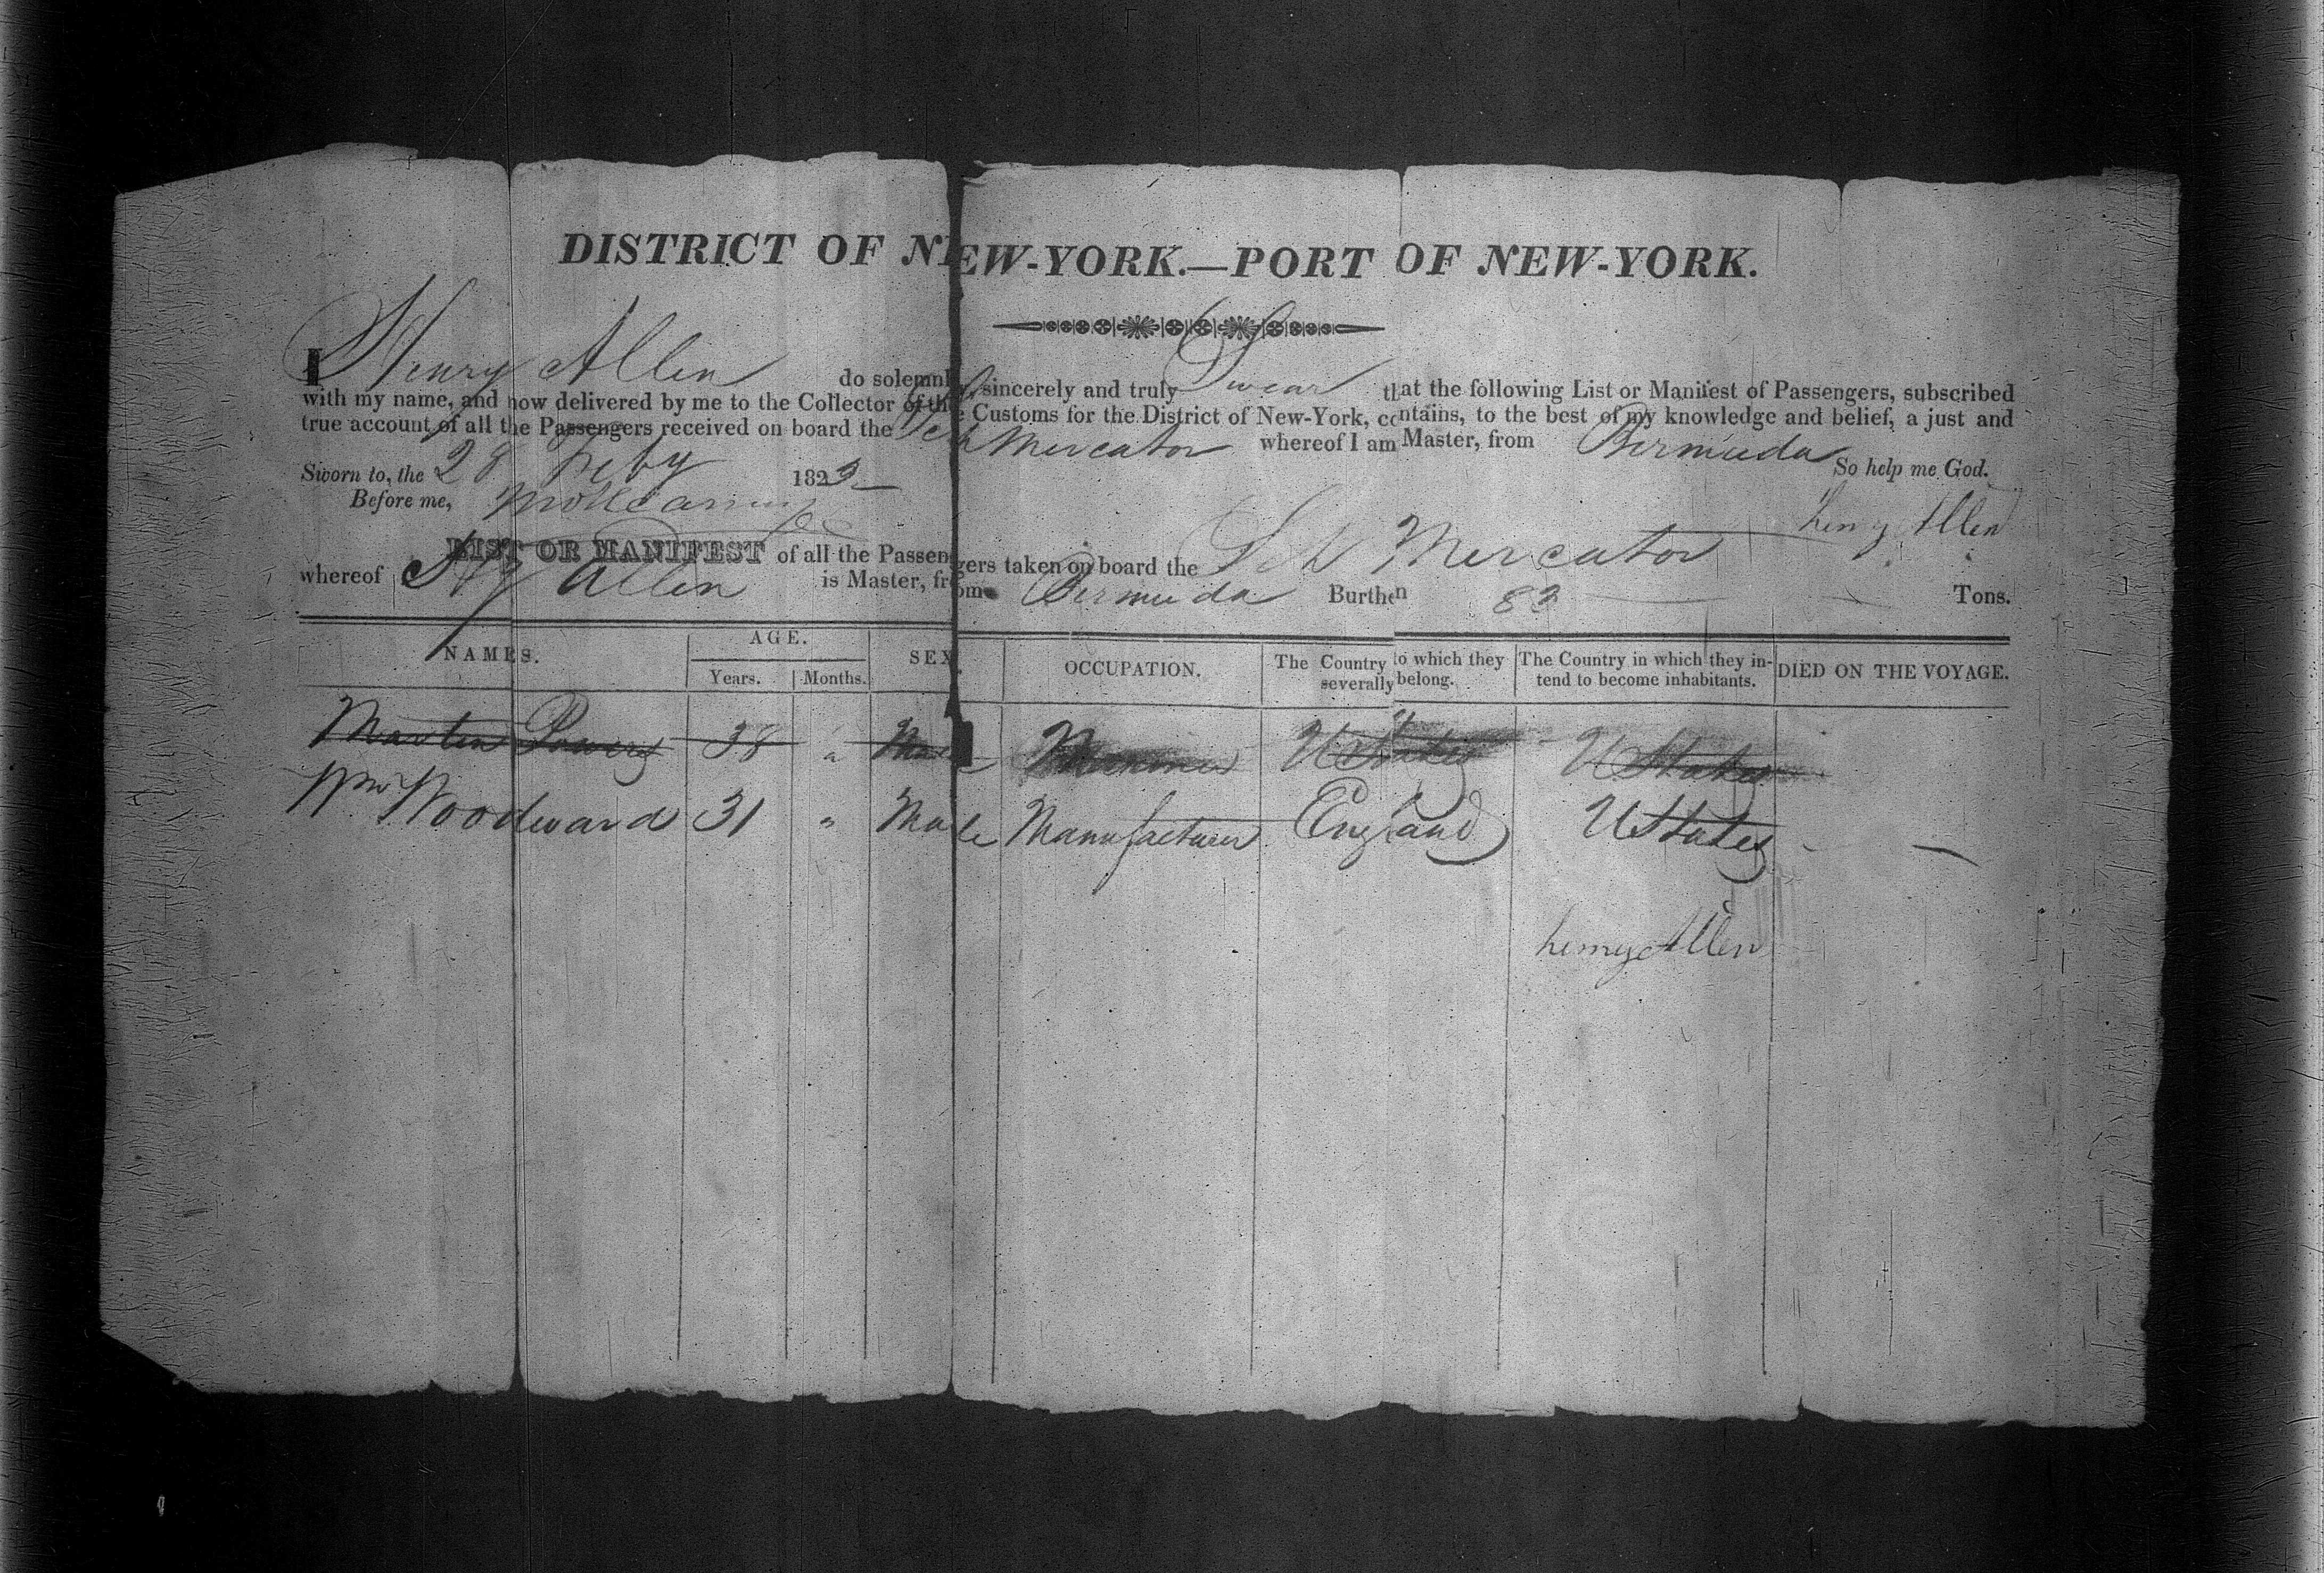 DISTRICT OF NEW-YORK.—PORT OF NEW-YORK.
I Henry Allen do solemnly, sincerely and truly Swear that the following List or Manifest of Passengers, subscribed
with my name, and now delivered by me to the Collector of the Customs for the District of New-York, contains, to the best of my knowledge and belief, a just and
true account of all the Passengers received on board the Sch Mercator whereof I am Master, from Bermuda
Sworn to, the 28 Feby 1823 So help me God.
Before me, Henry Allen
LIST OR MANIFEST of all the Passengers taken on board the Sch Mercator
whereof Hy Allen is Master, from Bermuda Burthen 83 Tons.
NAMES. AGE. Years. Months. SEX. OCCUPATION. The Country to which they severally belong. The Country in which they intend to become inhabitants. DIED ON THE VOYAGE.
Martin Powers 38 " Male Mariner U States U States
Wm Woodward 31 " Male Manufacturer England U States —
henry Allen